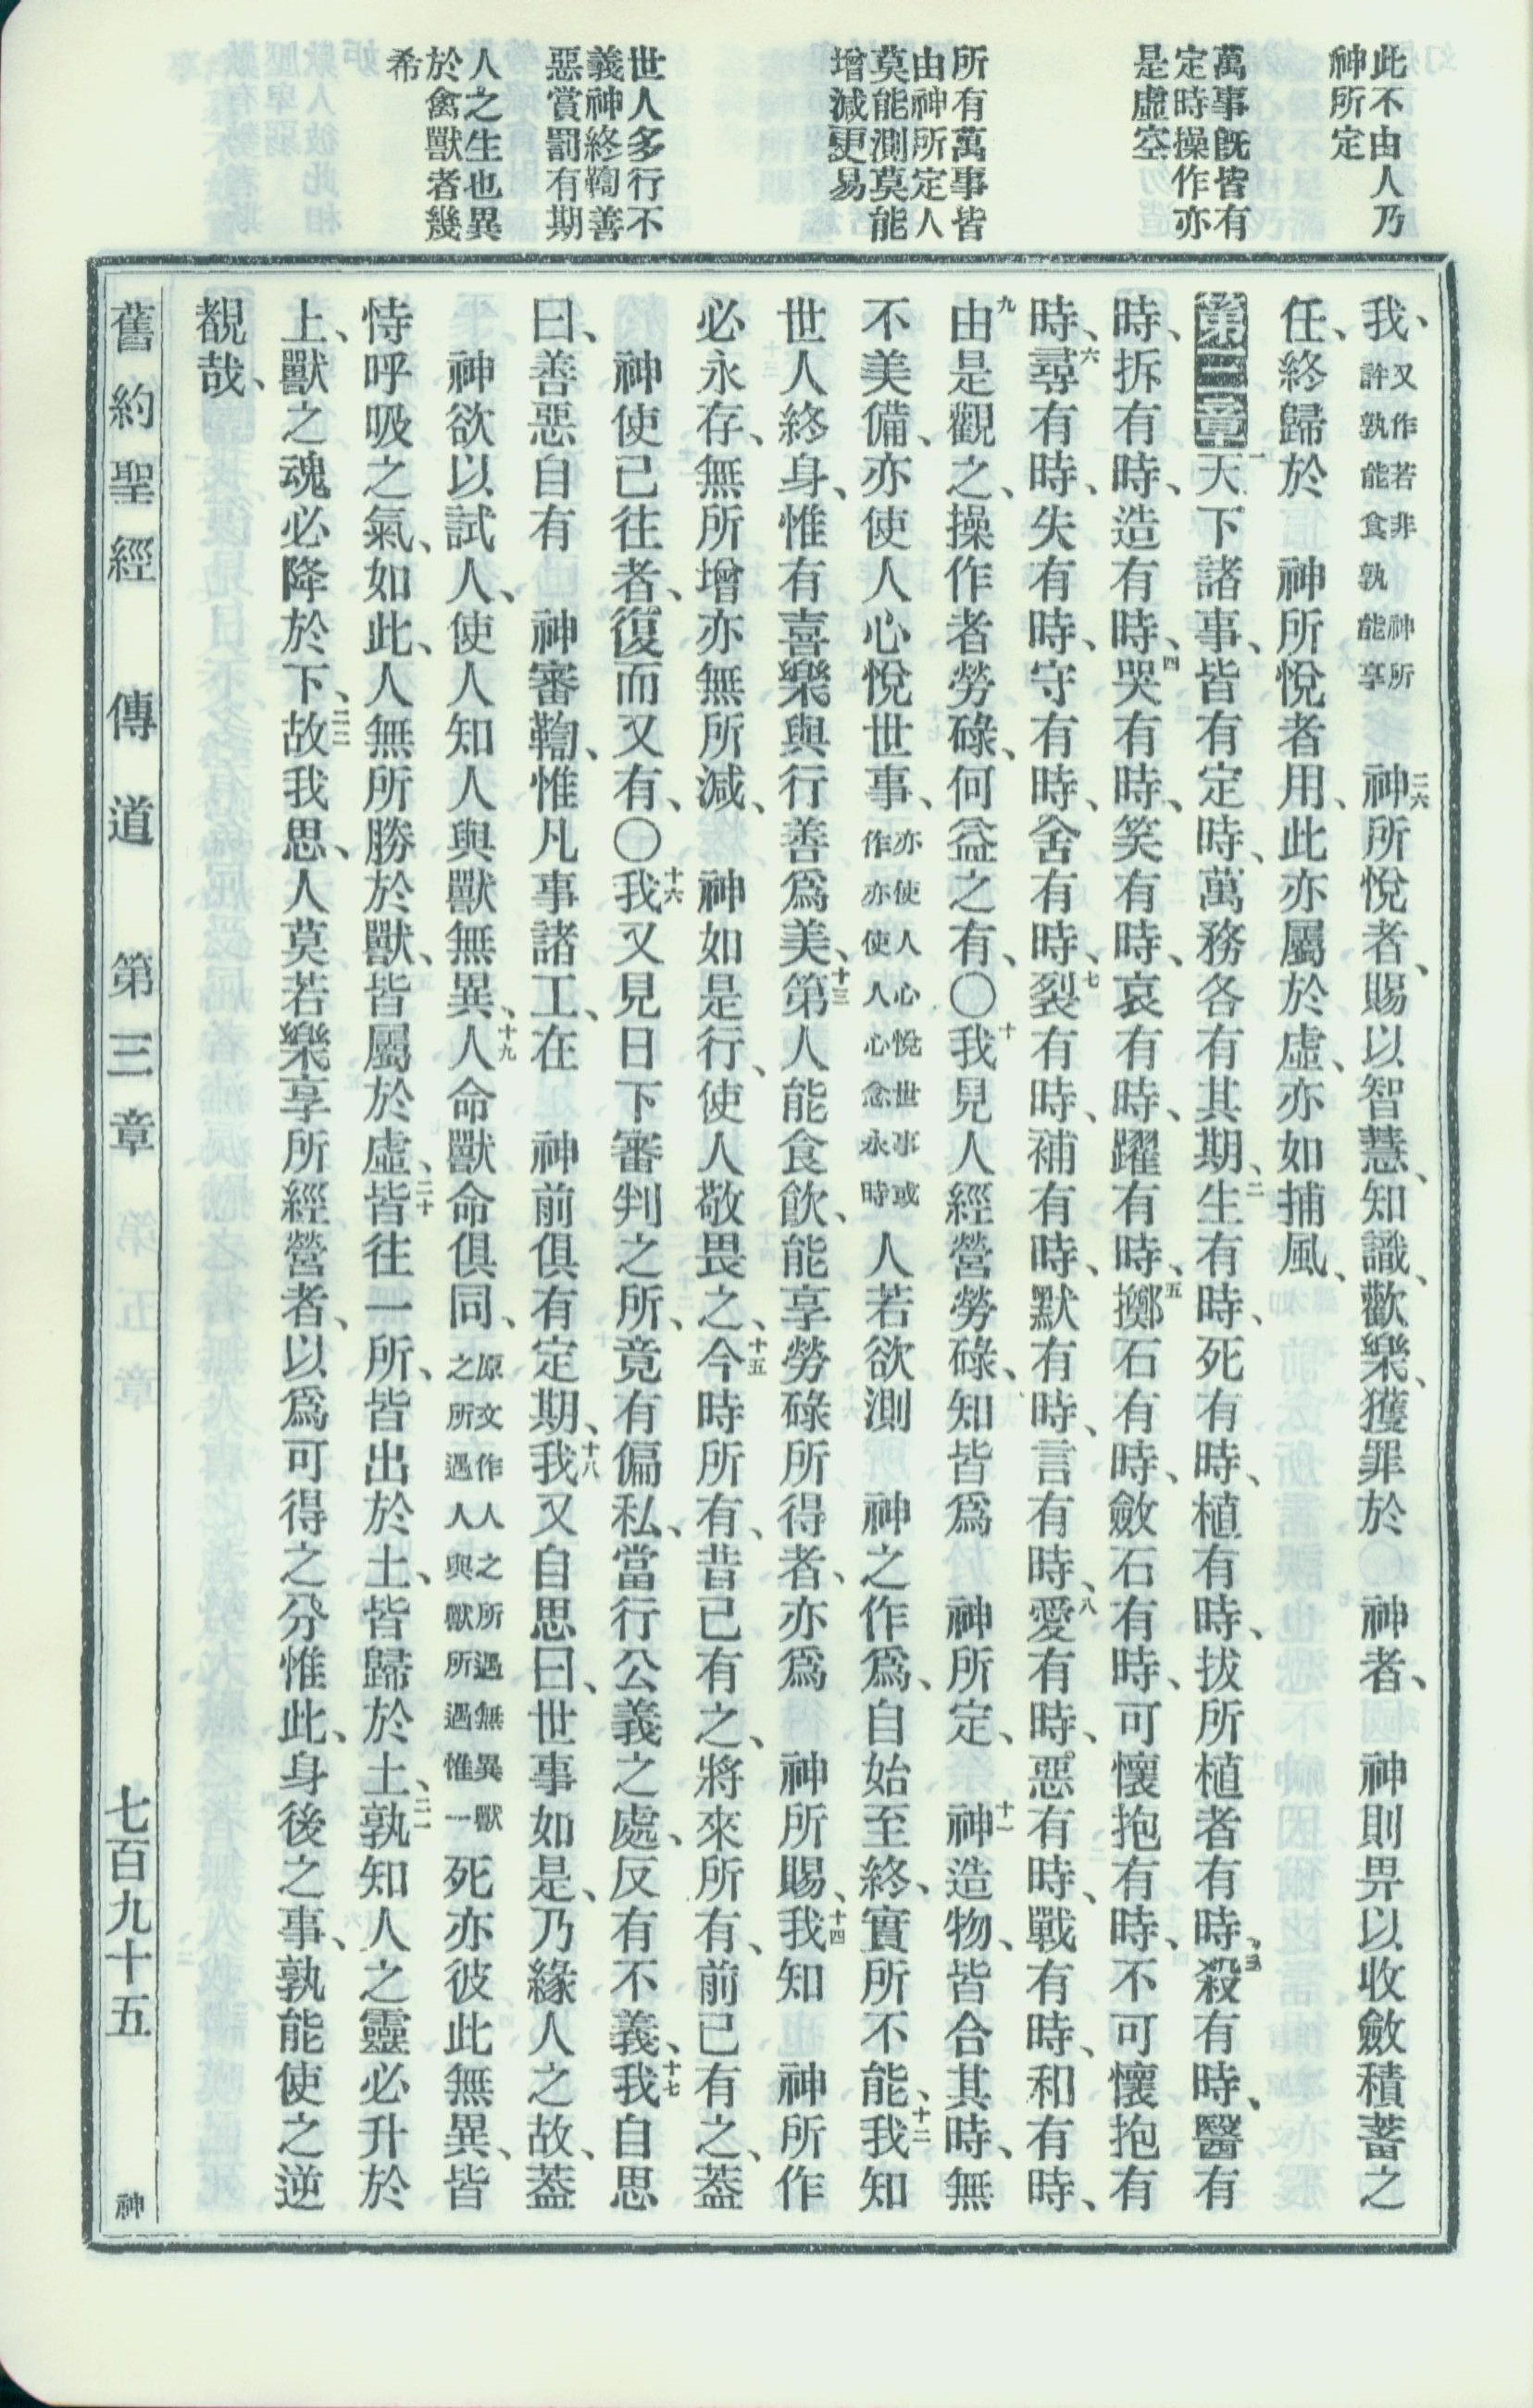 此不由人乃
神所定
萬事既皆有
定時操作亦
是虛空
所有萬事皆
由神所定人
莫能測莫能
增減更易
世人多行不
義神終鞫善
惡賞罰有期
人之生也異
於禽獸者幾
希
我、又作若非 神所許孰能食孰能享 二六神所悅者、賜以智慧、知識、歡樂、獲罪於 神者、 神則畀以收斂積蓄之
任、終歸於 神所悅者用、此亦屬於虛、亦如捕風、
第三章 一天下諸事、皆有定時、萬務各有其期、二生有時、死有時、植有時、拔所植者有時、三殺有時、醫有
時、拆有時、造有時、四哭有時、笑有時、哀有時、躍有時、五擲石有時、斂石有時、可懷抱有時、不可懷抱有
時、六尋有時、失有時、守有時、舍有時、七裂有時、補有時、默有時、言有時、八愛有時、惡有時、戰有時、和有時、
九由是觀之、操作者勞碌、何益之有、〇十我見人經營勞碌、知皆爲 神所定、十一神造物、皆合其時、無
不美備、亦使人心悅世事、亦使人心悅世事或作亦使人心念永時 人若欲測 神之作爲、自始至終、實所不能、十二我知
世人終身、惟有喜樂與行善爲美、十三第人能食飲、能享勞碌所得者、亦爲 神所賜、十四我知 神所作
必永存、無所增亦無所減、 神如是行、使人敬畏之、十五今時所有、昔已有之、將來所有、前已有之、蓋
神使已往者、復而又有、〇十六我又見日下審判之所、竟有偏私、當行公義之處、反有不義、十七我自思
曰、善惡自有 神審鞫、惟凡事諸工、在 神前俱有定期、十八我又自思曰、世事如是、乃緣人之故、蓋
神欲以試人、使人知人與獸無異、十九人命獸命俱同、原文作人之所遇無異獸之所遇人與獸所遇惟一 死亦彼此無異、皆
恃呼吸之氣、如此、人無所勝於獸、皆屬於虛、二十皆往一所、皆出於土、皆歸於土、二一孰知人之靈必升於
上、獸之魂必降於下、二二故我思、人莫若樂享所經營者、以爲可得之分惟此、身後之事、孰能使之逆
覩哉、
舊約聖經 傳道 第三章 七百九十五 神